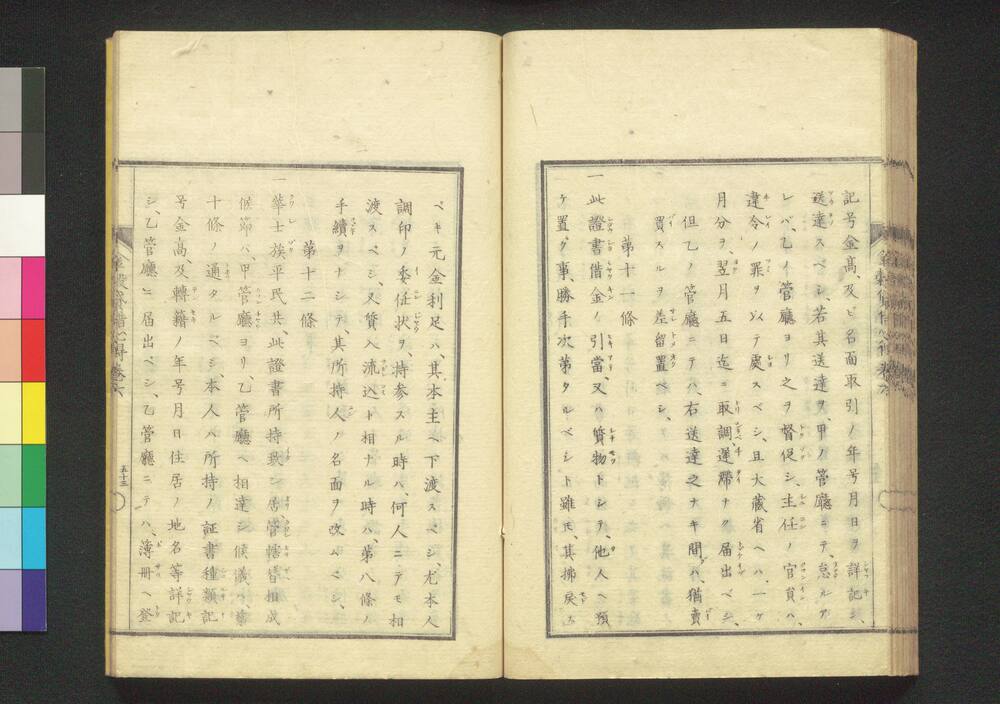 記号金高、及ビ名面取引ノ年号月日ヲ詳記シ、
送達スベシ、若其送達ヲ、甲ノ管廳ニテ、怠ルア
レバ、乙ノ管廳ヨリ之ヲ督促シ、主任ノ官員ハ、
違令ノ罪ヲ以テ處スベシ、且大藏省ヘハ、一ヶ
月分ヲ、翌月五日迄ニ取調、遲滯ナク届出ベシ、
但乙ノ管廳ニテハ、右送達之ナキ間ハ、猶賣
買スルヲ差留置ベシ、
第十一條
一此證書借金ノ引當、又ハ質物トシテ、他人ヘ預
ケ置ク事、勝手次第タルベシト雖モ、其拂戻ス
ベキ元金利足ハ、其本主ヘ下渡スベシ、尤本人
調印ノ委任状ヲ、持参スル時ハ、何人ニテモ相
渡スベシ、又質入流込ト相ナル時ハ、第八條ノ
手續ヲナシテ、其所持人ノ名面ヲ改ムベシ、
第十二條
一華士族平民共、此證書所持致シ居管轄替相成
候節ハ、甲管廳ヨリ、乙管廳ヘ相達シ候儀ハ、第
十條ノ通タルベシ、本人ハ所持ノ証書種類記
号金高、及轉籍ノ年号月日住居ノ地名等詳記
シ、乙管廳ニ届出ベシ、乙管廳ニテハ、簿冊ヘ登
五十三